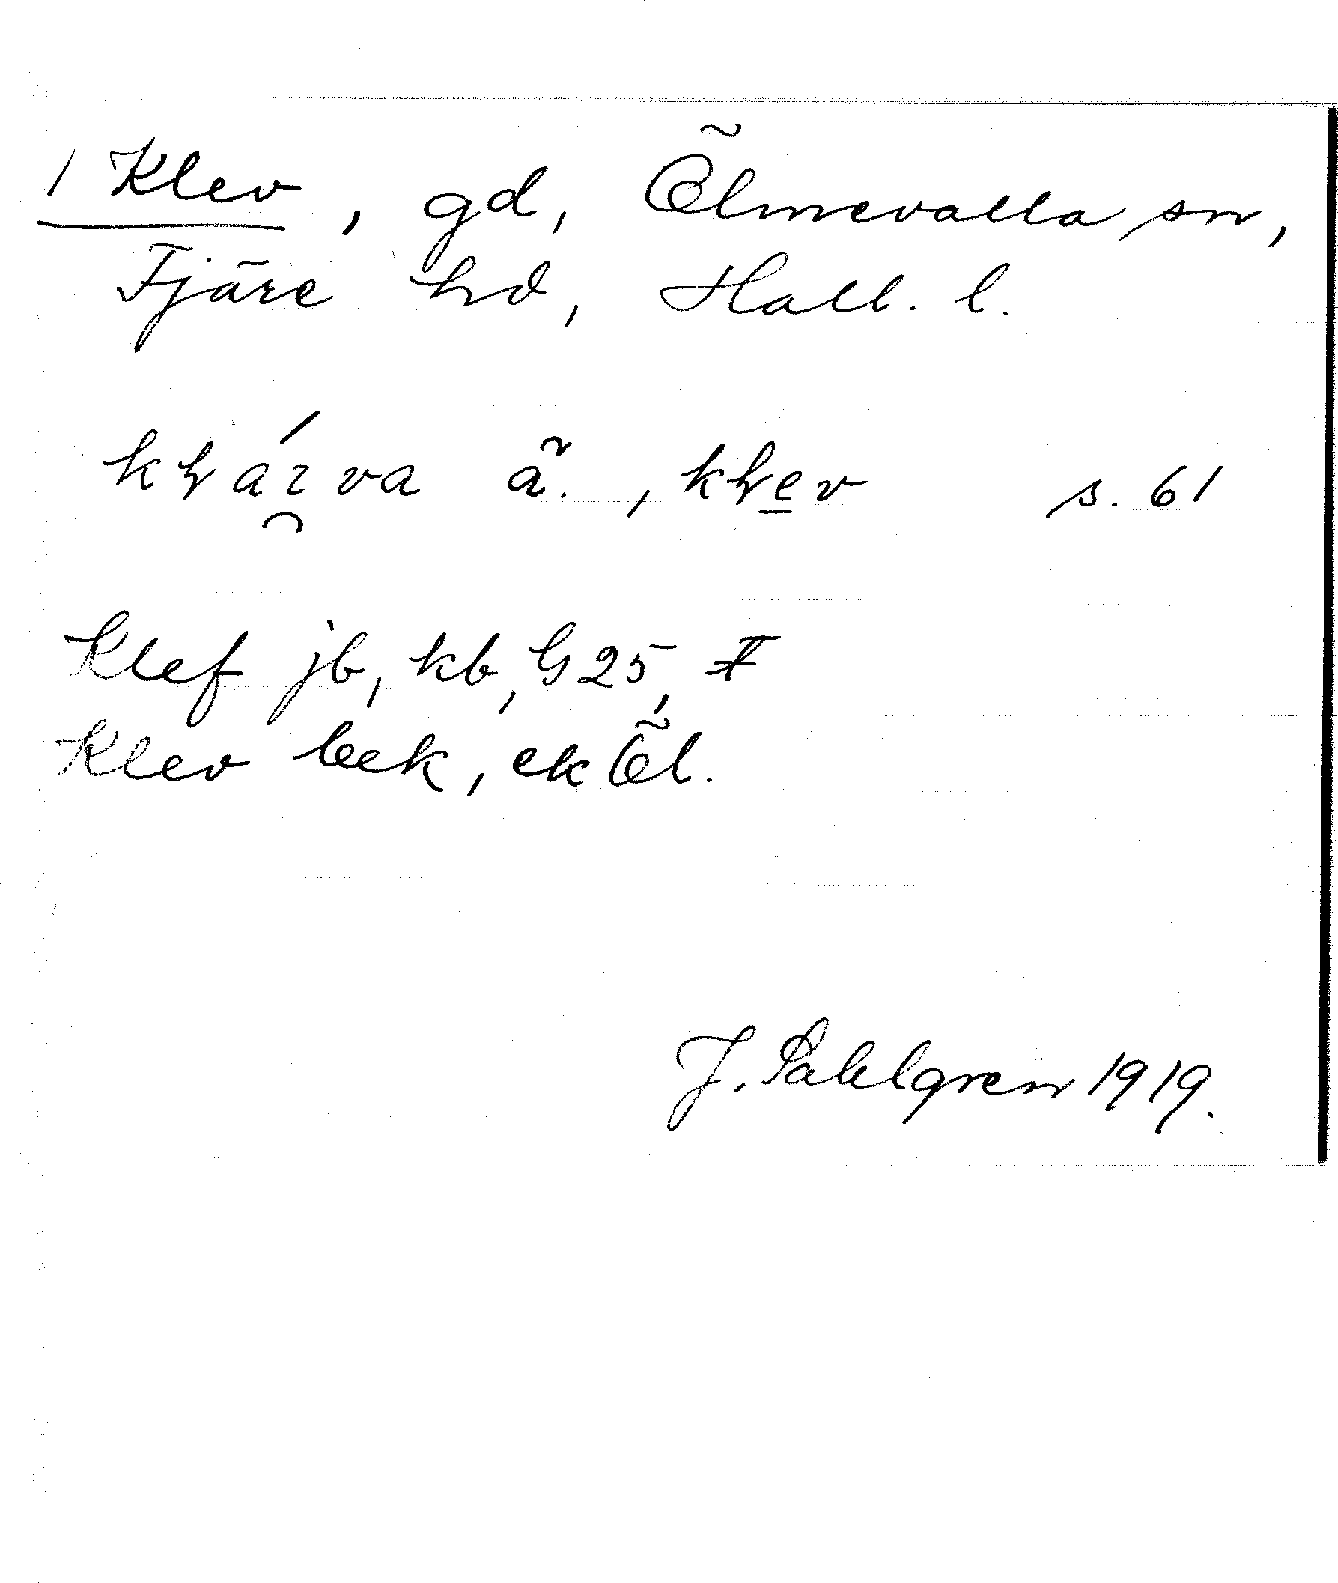 1 Klev, gd, Ölmevalla sn,
Fjäre hd, Hall. l.
s. 61
Klef jb, kb, G 25, F
Klev bek, ek Öl.
J. Sahlgren 1919.